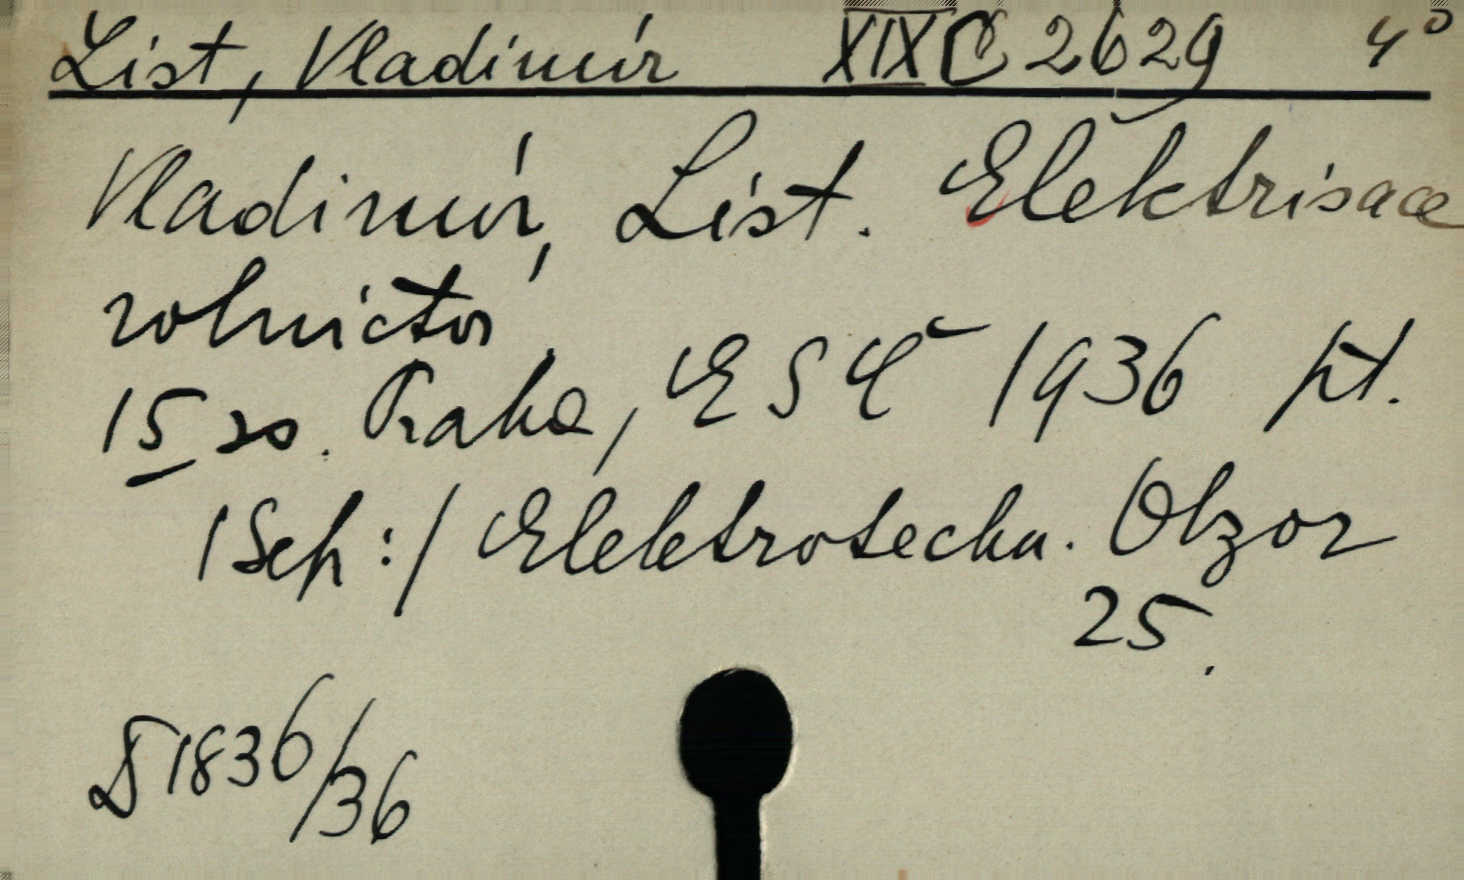 List, Vladimír XIX C 2629 4°
Vladimír, List. Elektrisace
rolnictví
15 so. Praha, ESČ 1936 pt.
/Sep:/ Elektrotechn. Obzor
25.
D 1836/36